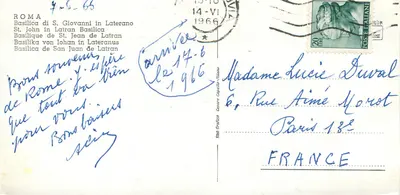 7-6-66
ROMA
Basilica di S. Giovanni in Laterano
St. John in Latran Basilica
Basilique de St. Jean de Latran
Basilika van Johan in Lateranus
Basilica de San Juan de Letran
14-VI
1966
Bons souvenirs
de Rome. J'espère
que tout va bien
pour vous.
Bons baisers
(arrivée
le 17-6
1966)
Madame Lucie Duval
6, Rue Aimé Morot
Paris 18e
FRANCE